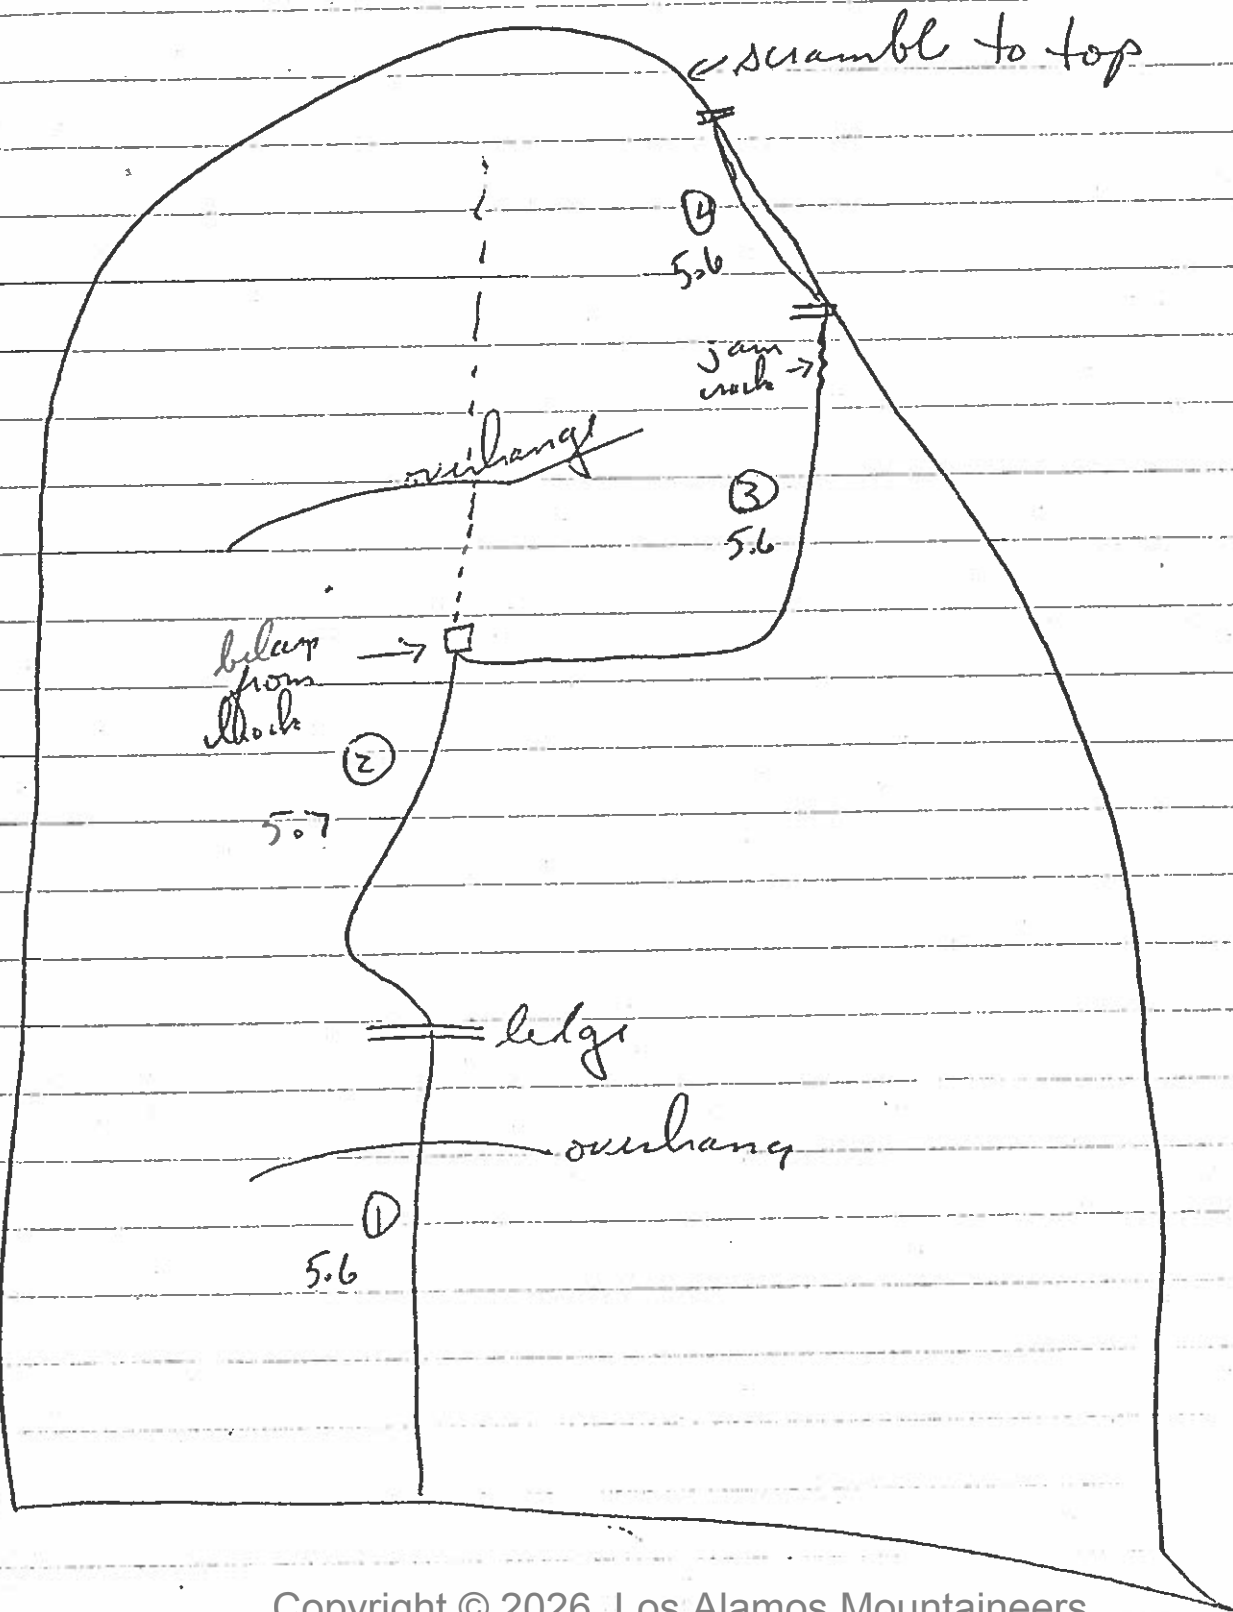 scramble to top
④
5.6
jam
crack
overhangs
③
5.6
belay
from
block
②
5.7
ledge
overhang
①
5.6
Copyright © 2026, Los Alamos Mountaineers